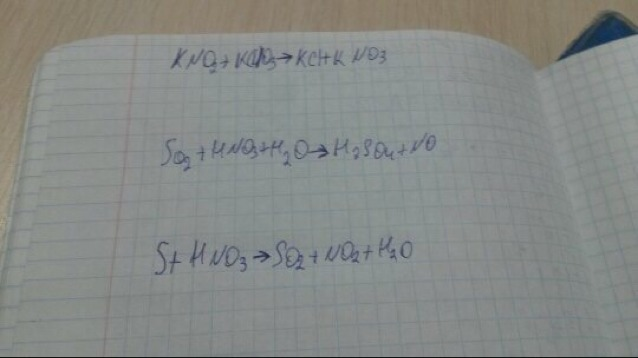 KNO2+KClO3→KCl+KNO3
SO2+HNO3+H2O→H2SO4+NO
S+HNO3→SO2+NO2+H2O